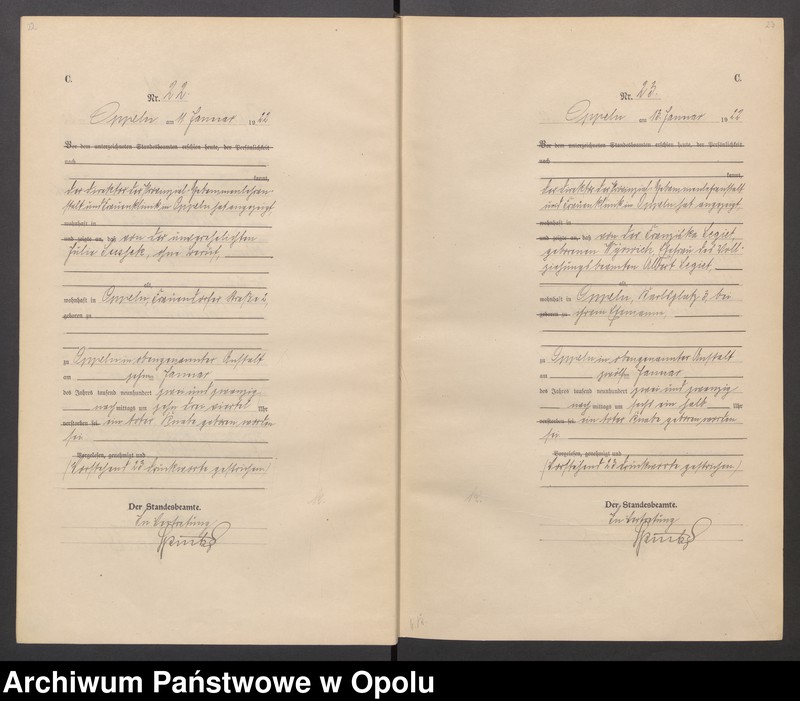 C.
Nr. 22.
Oppeln am 11 Januar 1922
Vor dem unterzeichneten Standesbeamten erschien heute, der Persönlichkeit
nach
kannt,
der Direktor der Provinzial-Hebammenlehran-
stalt und Frauenklinik in Oppeln hat angezeigt
wohnhaft in
und zeigte an, daß von der unverehelichten
Julie, ohne Beruf,
alt
wohnhaft in Oppeln, Frauendorfer Straße 2,
geboren zu
zu Oppeln in obengenannter Anstalt
am zehnten Januar
des Jahres tausend neunhundert zwei und zwanzig
nachmittags um zehn drei viertel Uhr
verstorben sei. ein toter Knabe geboren worden
sei.
Vorgelesen, genehmigt und
(Vorstehend 23 Druckworte gestrichen)
Der Standesbeamte.
In Vertretung
C.
Nr. 23.
Oppeln am Januar 1922
Vor dem unterzeichneten Standesbeamten erschien heute, der Persönlichkeit
nach
kannt,
der Direktor der Provinzial-Hebammenlehranstalt
und Frauenklinik in Oppeln hat angezeigt
wohnhaft in
und zeigte an, daß von der Franziska Legiet,
geborenen, Ehefrau des Voll-
ziehungsbeamten Albert Legiet,
alt
wohnhaft in Oppeln, Karlsplatz 3, bei
geboren zu ihrem Ehemann,
zu Oppeln in obengenannter Anstalt
am zwölften Januar
des Jahres tausend neunhundert zwei und zwanzig
nachmittags um sechs ein halb Uhr
verstorben sei. ein toter Knabe geboren worden
sei.
Vorgelesen, genehmigt und
(Vorstehend 23 Druckworte gestrichen)
Der Standesbeamte.
In Vertretung
Archiwum Państwowe w Opolu